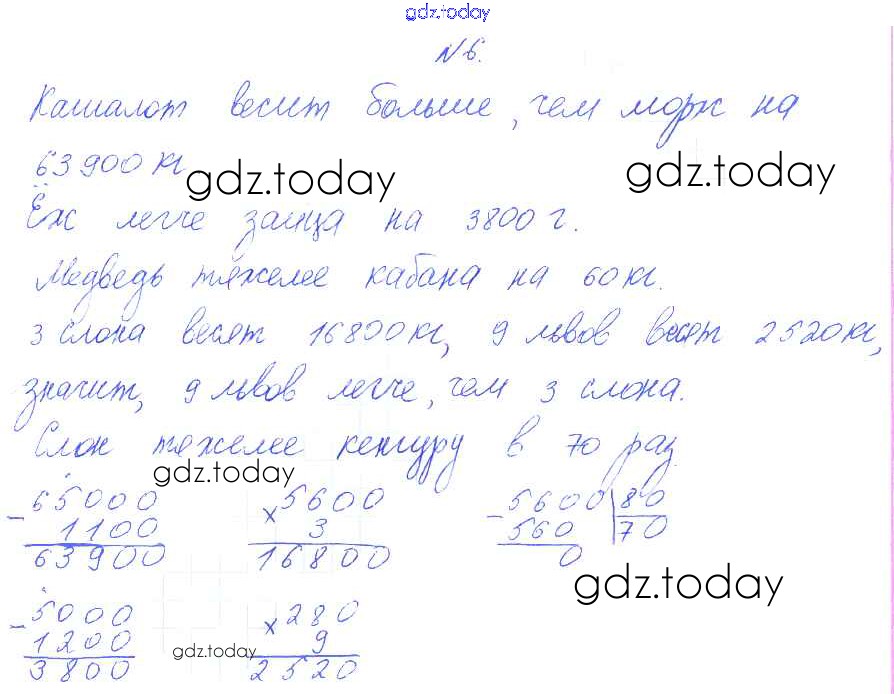 gdz.today
N 6.
Кашалот весит больше, чем морж на
63900 кг
gdz.today gdz.today
Ёж легче зайца на 3800 г.
Медведь тяжелее кабана на 60 кг.
3 слона весят 16800 кг, 9 львов весят 2520 кг,
значит, 9 львов легче, чем 3 слона.
Слон тяжелее кенгуру в 70 раз.
gdz.today
- 65000
1100
63900
× 5600
3
16800
- 5600 | 80
560 | 70
0
gdz.today
- 5000
1200
3800
× 280
9
2520
gdz.today